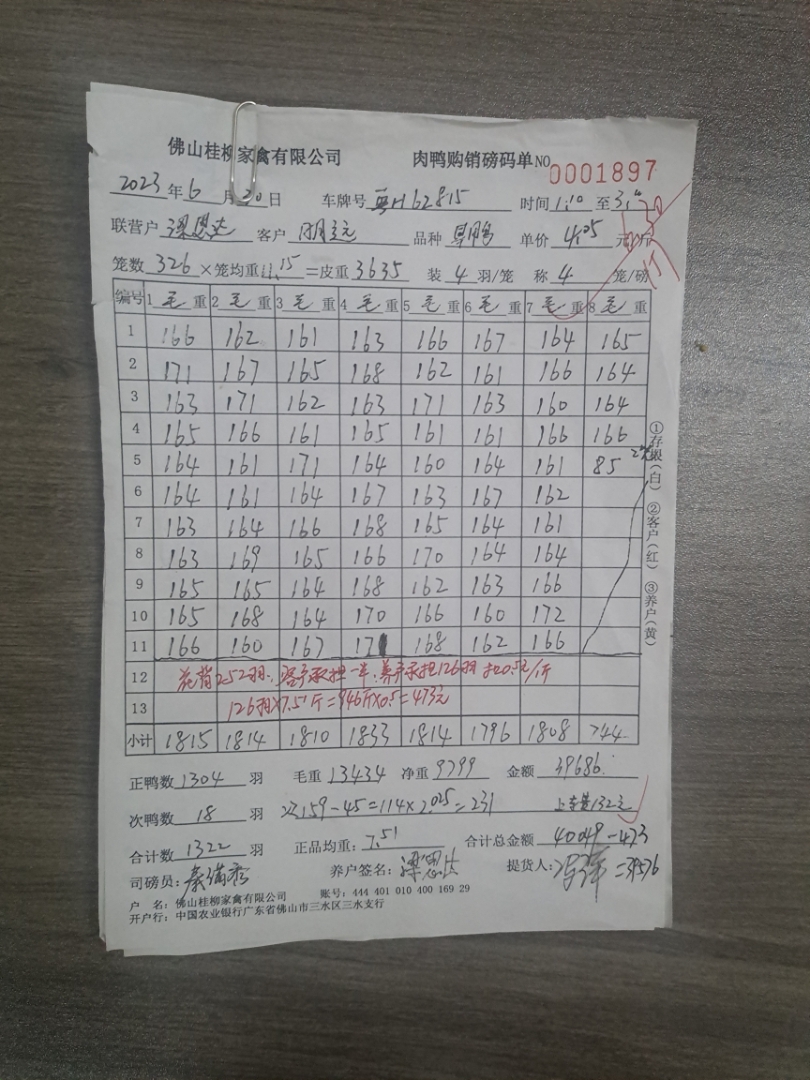 佛山桂柳家禽有限公司 肉鸭购销磅码单 NO 0001897
2023年6月20日 车牌号 粤H62815 时间 1:10 至 3:
联营户 梁恩达 客户 品种 单价 4.05 元/斤
笼数 326 ×笼均重 11.15 =皮重 3635 装 4 羽/笼 称 4 笼/磅
编号 1 毛 重 2 毛 重 3 毛 重 4 毛 重 5 毛 重 6 毛 重 7 毛 重 8 毛 重
1 166 162 161 163 166 167 164 165
2 171 167 165 168 162 161 166 164
3 163 171 162 163 171 163 160 164
4 165 166 161 165 161 161 166 166
5 164 161 171 164 160 164 161 85
6 164 161 164 167 163 167 162
7 163 164 166 168 165 164 161
8 163 169 165 166 170 164 164
9 165 165 164 168 162 163 166
10 165 168 164 170 166 160 172
11 166 160 167 171 168 162 166
12 花背252羽,客户承担一半,养户承担126羽 扣0.5元/斤
13 126羽×7.51斤=946斤×0.5=473元
小计 1815 1814 1810 1833 1814 1796 1808 744
正鸭数 1304 羽 毛重 13434 净重 9799 金额 39686
次鸭数 18 羽 159-45=114×2.025=231 132元
合计数 1322 羽 正品均重: 7.51 合计总金额 40049-473
司磅员: 养户签名: 梁恩达 提货人: =39576
户 名: 佛山桂柳家禽有限公司 账号: 444 401 010 400 169 29
开户行: 中国农业银行广东省佛山市三水区三水支行
①存根(白) ②客户(红) ③养户(黄)